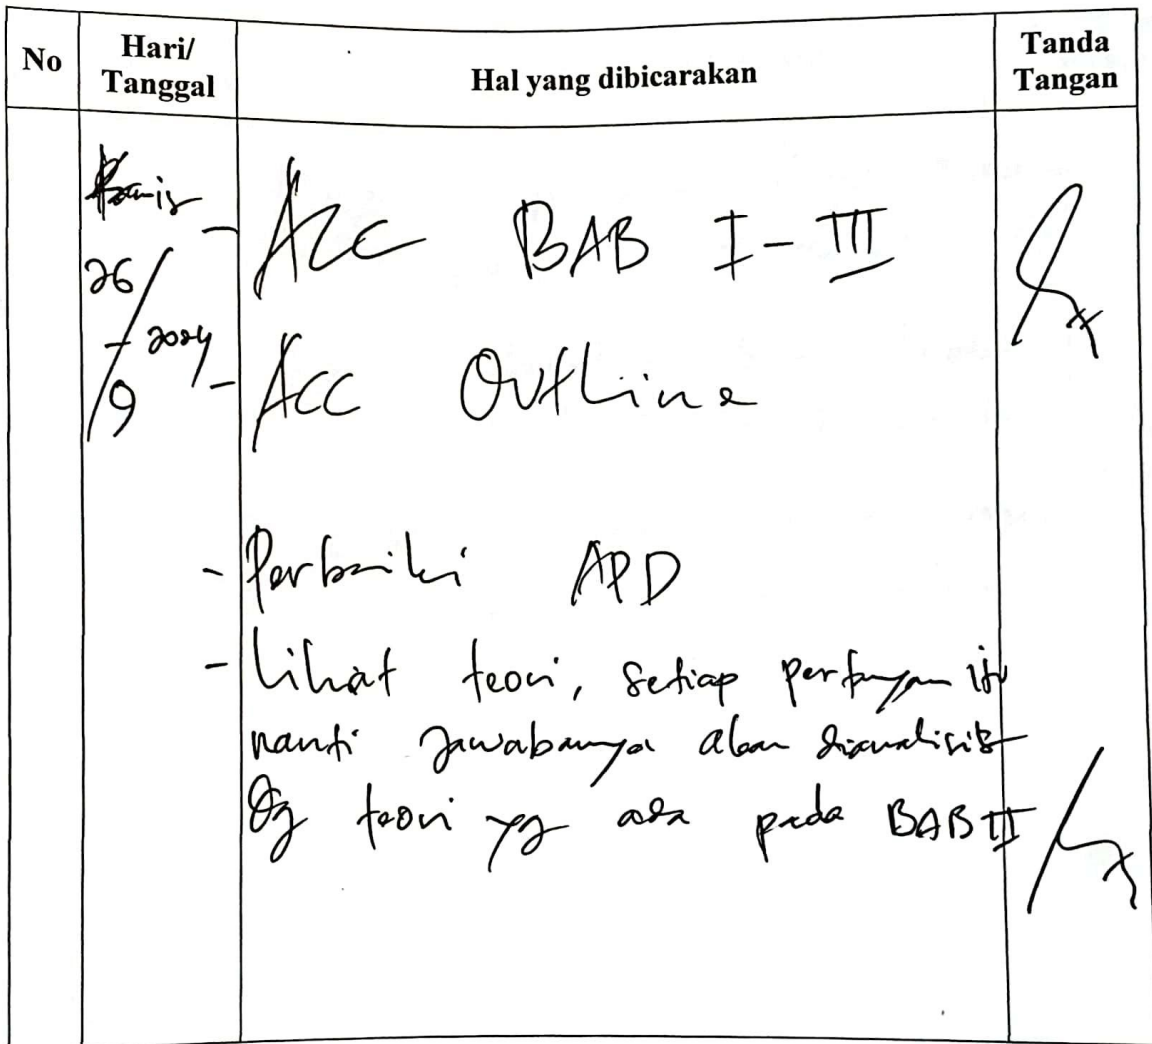 No
Hari/
Tanggal
Hal yang dibicarakan
Tanda
Tangan
Kamis
26/9-2024
- Acc BAB I - III
- Acc Outline
- Perbaiki APD
- Lihat teori, setiap pertanyaan itu
nanti jawabannya akan dianalisis
Dg teori yg ada pada BAB II